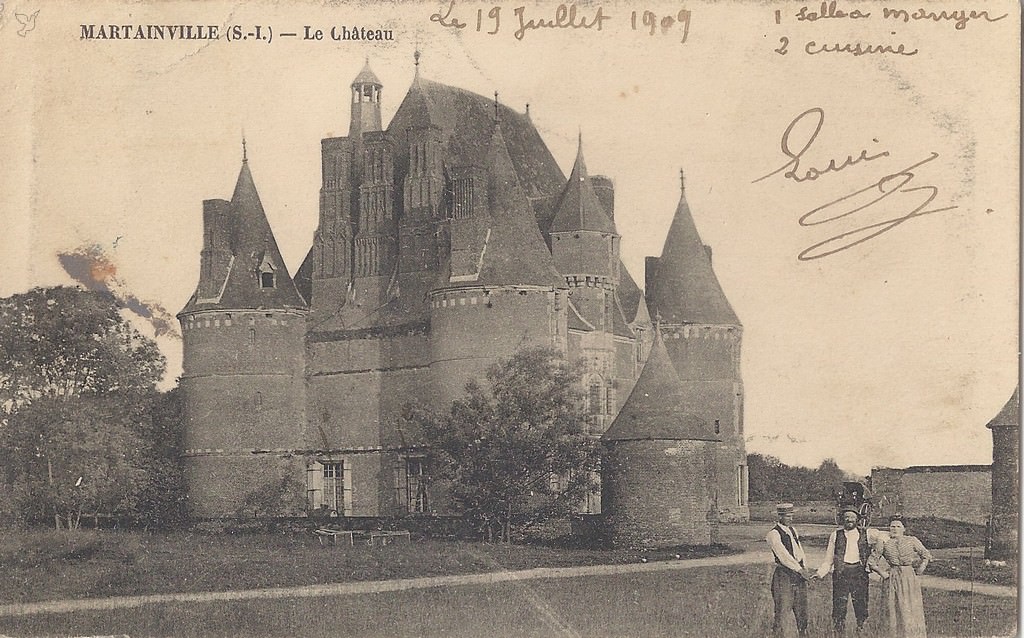 MARTAINVILLE (S.-I.) — Le Château
Le 19 Juillet 1909
1 salle a manger
2 cuisine
Louis